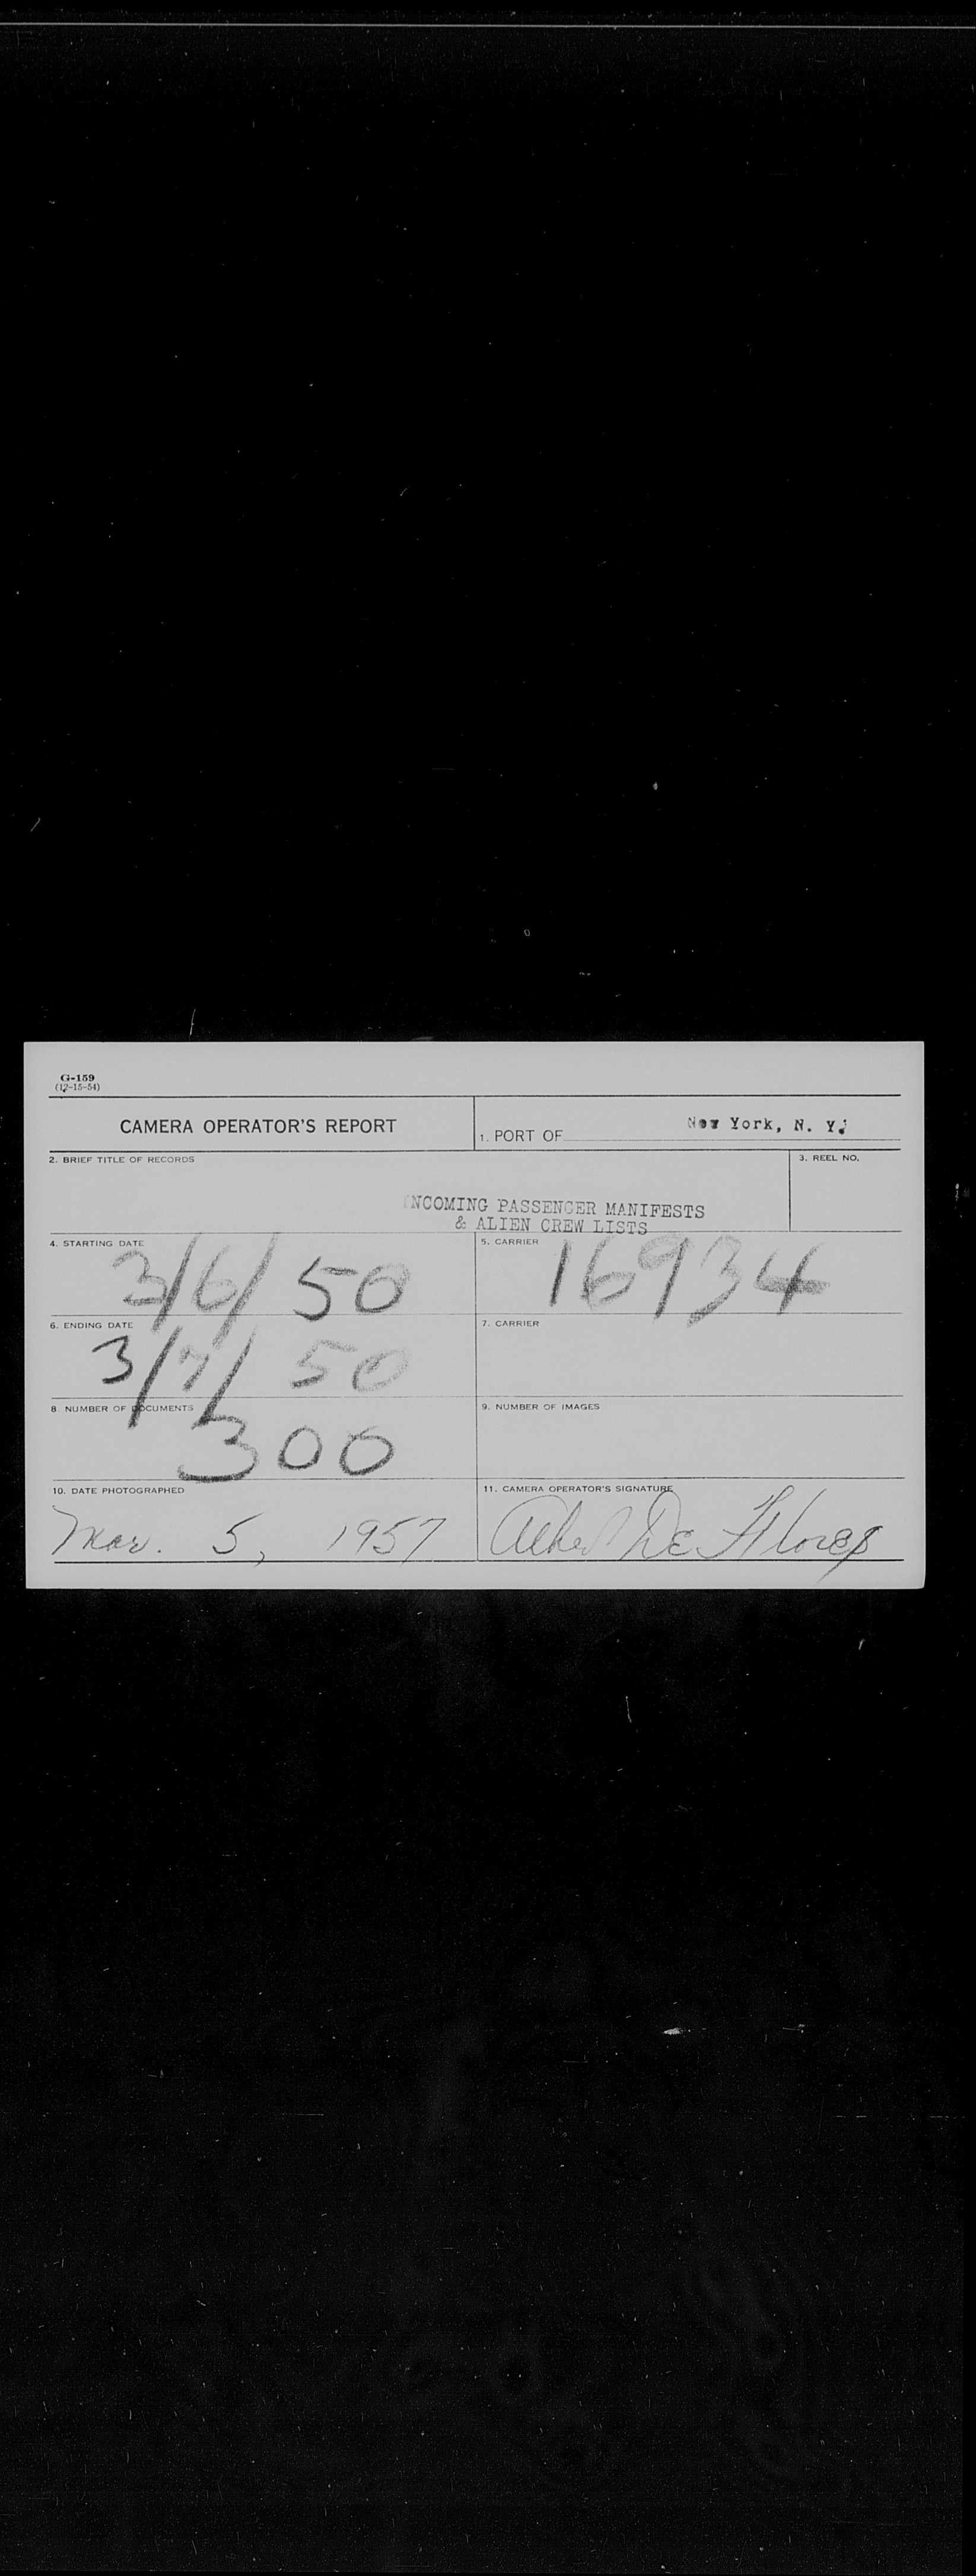 G-159
(12-15-54)
CAMERA OPERATOR'S REPORT
1. PORT OF New York, N. Y.
2. BRIEF TITLE OF RECORDS
3. REEL NO.
INCOMING PASSENGER MANIFESTS
& ALIEN CREW LISTS
4. STARTING DATE 3/6/50
5. CARRIER 16934
6. ENDING DATE 3/7/50
7. CARRIER
8 NUMBER OF DOCUMENTS 300
9. NUMBER OF IMAGES
10. DATE PHOTOGRAPHED
11. CAMERA OPERATOR'S SIGNATURE
Mar. 5, 1957
De Flores